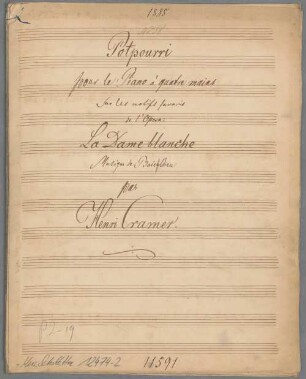 1835
Potpourri
pour le Piano à quatre mains
sur les motifs favoris
de l'Opera:
La Dame blanche
Musique de Boieldieu
par
Henri Cramer.
12474-2
11591